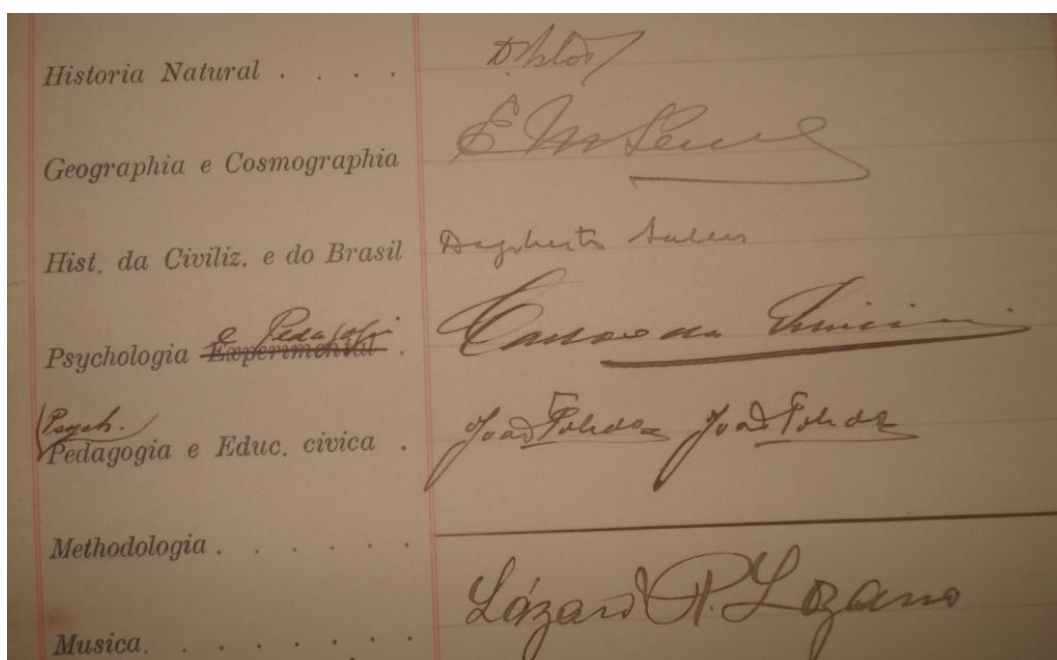 Historia Natural . . . .
Geographia e Cosmographia E M
Hist. da Civiliz. e do Brasil Dagoberto
e Pedagogi
Psychologia Experimental .
Psych.
Pedagogia e Educ. civica . João Toledo João Toledo
Methodologia . . . . . .
Musica. . . . . . . . Lázaro R. Lozano